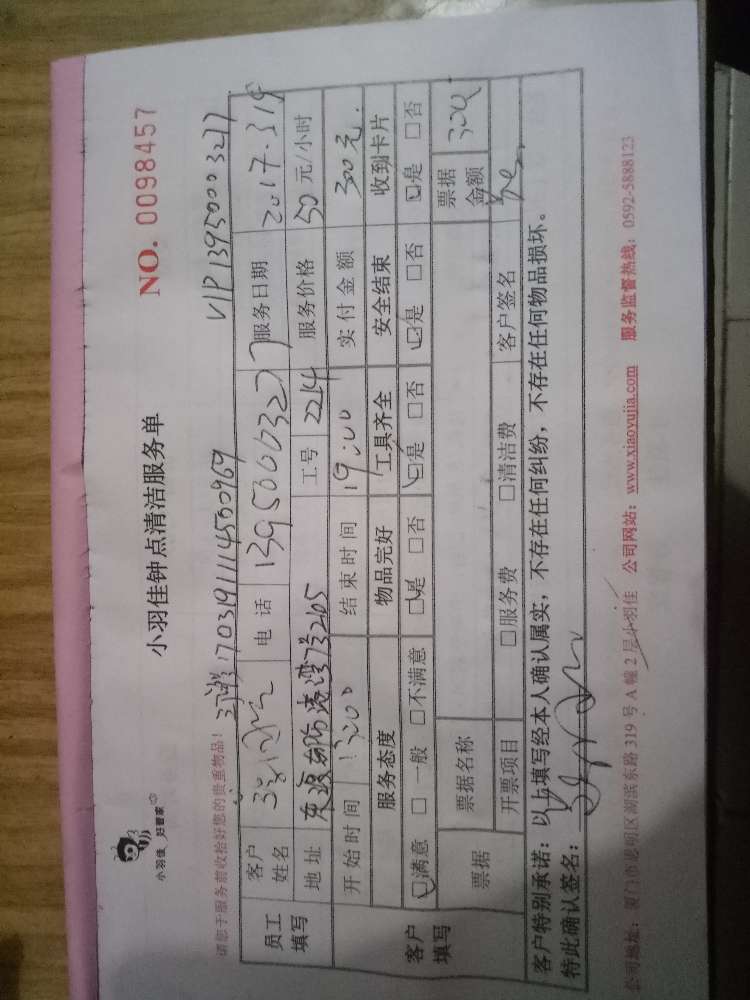 小羽佳 好管家
小羽佳钟点清洁服务单
NO. 0098457
请您于服务前收拾好您的贵重物品!
1703191114500969
VIP13950003277
员工填写
客户姓名
电话 13950003277
服务日期 2017.3.19
地址
工号 2214
服务价格 50元/小时
客户填写
开始时间 13:00
结束时间 19:00
实付金额 300元
服务态度
物品完好
工具齐全
安全结束
收到卡片
☑满意 □一般 □不满意
☑是 □否
☑是 □否
☑是 □否
☑是 □否
票据
票据名称
票据金额
开票项目
□服务费 □清洁费
客户签名
客户特别承诺:以上填写经本人确认属实,不存在任何纠纷,不存在任何物品损坏。
特此确认签名:
公司地址:厦门市思明区湖滨东路 319 号 A 幢 2 层小羽佳 公司网站:www.xiaoyujia.com 服务监督热线:0592-5888123